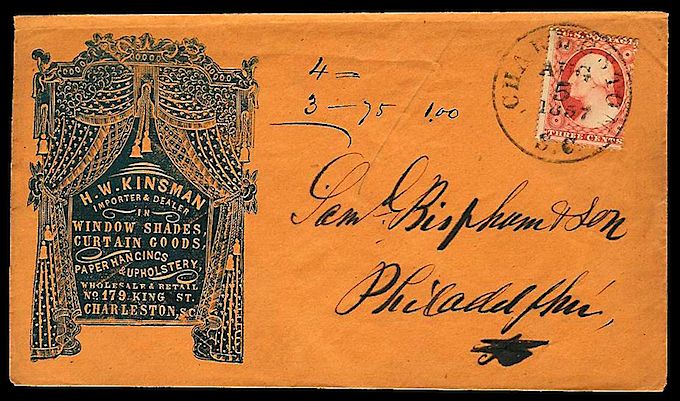 H. W. KINSMAN
IMPORTER & DEALER
IN
WINDOW SHADES,
CURTAIN GOODS,
PAPER HANGINGS
& UPHOLSTERY,
WHOLESALE & RETAIL
No. 179. KING ST.
CHARLESTON, S.C.
4 —
3 — 75 1.00
CHARLESTON
AUG
5
1857
S.C.
THREE CENTS
Saml Bispham & Son
Philadelphia,